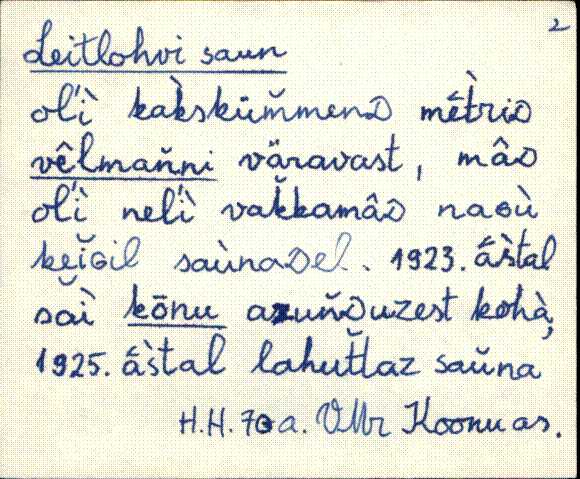 2
Leitlohvi saun
oĺì kak̀skümmenᴅ mêt̀riᴅ
vêlman̆ni väravast, mâᴅ
oĺì neĺì vak̆kamâᴅ naɢù
keĭɢil saùnaᴅel. 1923. ás̀tal
săì kōnu azun̆ᴅuzest kohà,
1925. ás̀tal lahut̆taz saŭna
H.H. 70 a. VMr Koonu as.